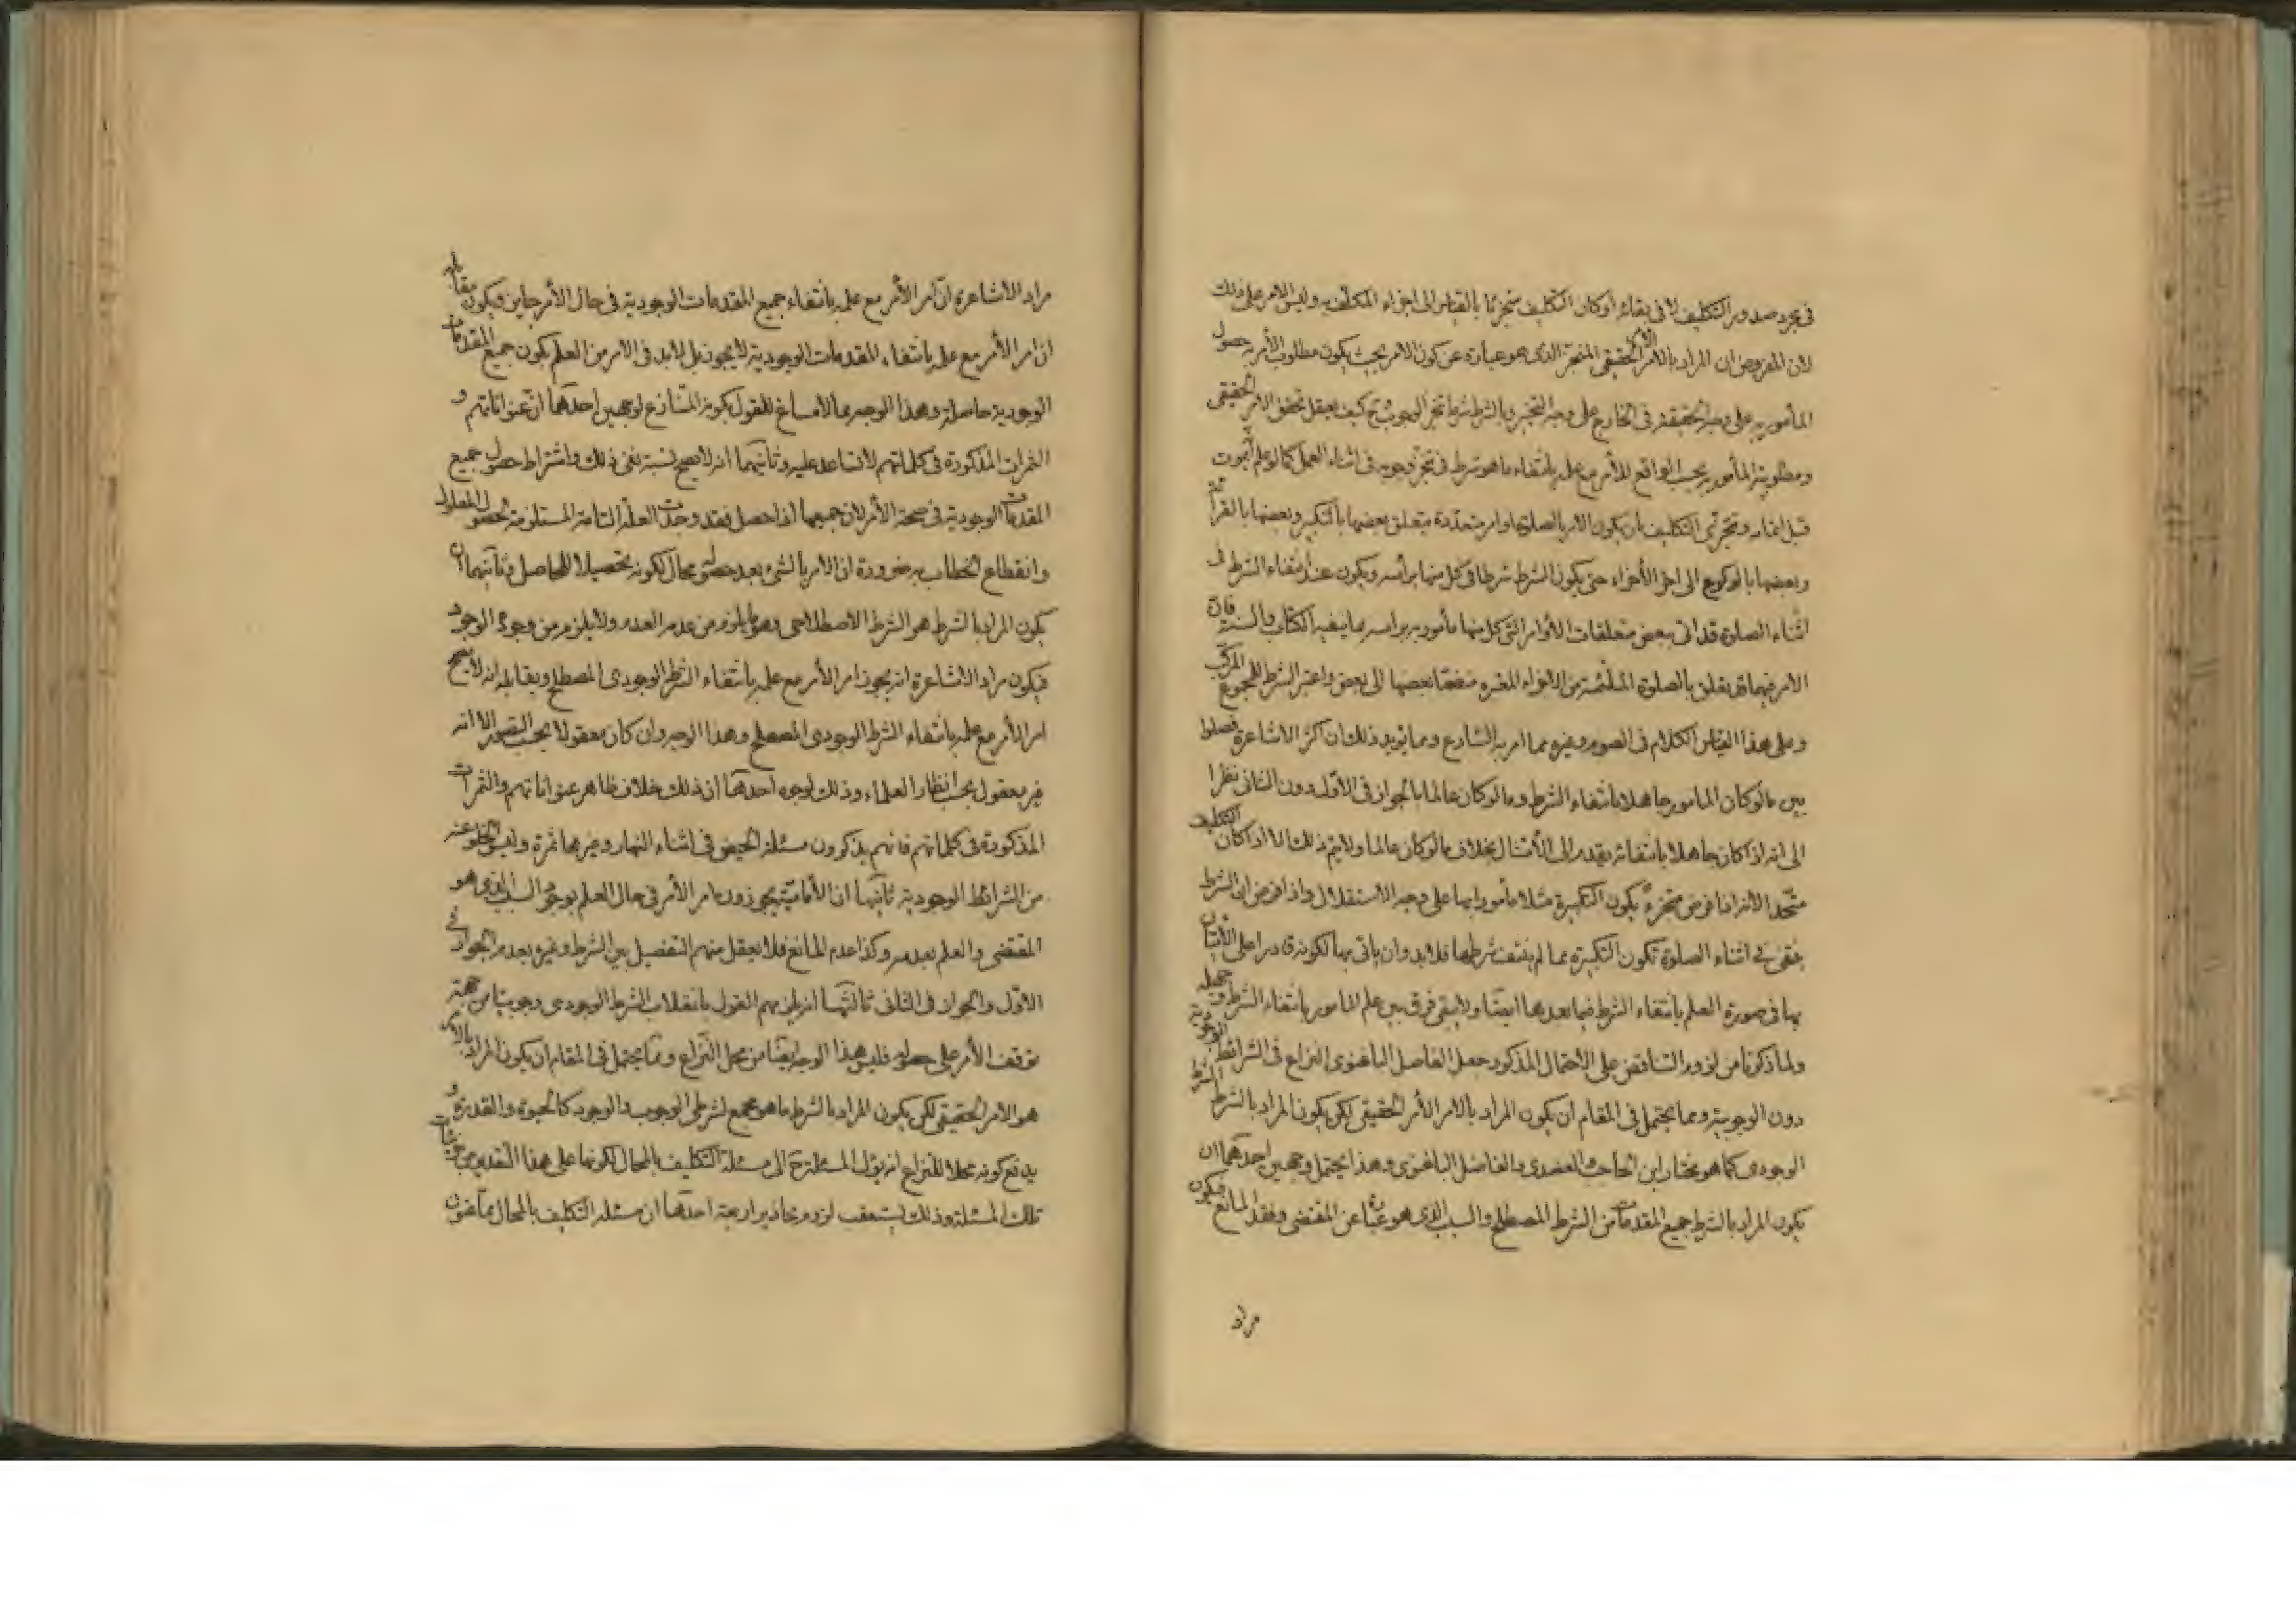 في مجرد صدور التكليف لا في بقائه او كان التكليف متجزئا بالقياس الى اجزاء المكلف به وليس الامر على ذلك
لان المفروض ان المراد بالامر الامر الحقيقي المنجز الذى هو عبارة عن كون الامر بحيث يكون مطلوب الأمر به حصول
المأمور به على وجه الحقيقة في الخارج على وجه التنجيز وبالشرط شرط تنجز الوجوب كيف يعقل تحقق الامر الحقيقي
ومطلوبية المأمور به بحسب الواقع للأمر مع علمه بانتفاء ما هو شرط في تنجز وجوبه في اثناء العمل كما لو علم انه يموت
قبل اتمامه وتجزى التكليف بان يكون الامر بالصلوة اوامر متعددة متعلق بعضها بالتكبير وبعضها بالقرائة
وبعضها بالركوع الى اخر الأجزاء حتى يكون الشرط شرطا في كل منها برأسه ويكون عند انتفاء الشرط في
اثناء الصلوة قد اتى ببعض متعلقات الأوامر التي كل منها مأمور به براسه مما ينفيه الكتاب والسنة فان
الامر فيهما قد تعلق بالصلوة الملتئمة من الاجزاء المقررة منضما بعضها الى بعض واعتبر الشرط للمجموع المركب
وعلى هذا القياس الكلام في الصوم وغيره مما امر به الشارع ومما يؤيد ذلك ان اكثر الاشاعرة فصلوا
بين ما لو كان المامور جاهلا بانتفاء الشرط وما لو كان عالما بالجواز في الأول دون الثانى نظرا
الى انه اذا كان جاهلا بانتفائه يقدم الى الأمتثال بخلاف ما لو كان عالما ولا يتم ذلك الا اذا كان التكليف
متحدا لانه اذا فرض متجزء يكون التكبيرة مثلا مأمورا بها على وجه الاستقلال واذا فرض ان الشرط
ينتفى في اثناء الصلوة تكون التكبيرة مما لم ينتف شرطها فلا بد وان ياتى بها لكونه قادرا على الأتيان
بها في صورة العلم بانتفاء الشرط فيما بعدها ايضا ولا يبقى فرق بين علم المامور بانتفاء الشرط وجهله
ولما ذكرنا من لزوم التناقض على الاحتمال المذكور جعل الفاضل الباغنوى النزاع في الشرائط الوجودية
دون الوجوبية ومما يحتمل في المقام ان يكون المراد بالامر الأمر الحقيقي لكن يكون المراد بالشرط الشرط
الوجودى كما هو مختار ابن الحاجب والعضدى والفاضل الباغنوى وهذا يحتمل وجهين احدهما ان
يكون المراد بالشرط جميع المقدمات من الشرط المصطلح والسبب الذى هو عبارة عن المقتضى وفقد المانع فيكون
مراد
مراد الاشاعرة ان امر الأمر مع علمه بانتفاء جميع المقدمات الوجودية في حال الأمر جايز فيكون مقابله
ان امر الأمر مع علمه بانتفاء المقدمات الوجودية لا يجوز بل لابد في الامر من العلم بكون جميع المقدمات
الوجودية حاصلة وهذا الوجه مما لا مساغ للقول بكونه المتنازع لوجهين احدهما ان عنواناتهم و
الثمرات المذكورة في كلماتهم لا تساعد عليه وثانيهما انه لا يصح نسبة نفى ذلك واشتراط حصول جميع
المقدمات الوجودية في صحة الأمر لان جميعها اذا حصل فقد وجدت العلة التامة المستلزمة لحصول المعلول
وانقطاع الخطاب به ضرورة ان الامر بالشىء بعد حصوله محال لكونه تحصيلا للحاصل وثانيهما ان
يكون المراد بالشرط هو الشرط الاصطلاحى وهو ما يلزم من عدمه العدم ولا يلزم من وجوده الوجود
فيكون مراد الاشاعرة انه يجوز امر الأمر مع علمه بانتفاء الشرط الوجودى المصطلح ويقابله انه لا يصح
امر الأمر مع علمه بانتفاء الشرط الوجودى المصطلح وهذا الوجه وان كان معقولا بحسب التصور الا انه
غير معقول بحسب انظار العلماء وذلك لوجوه احدها ان ذلك خلاف ظاهر عنواناتهم والثمرات
المذكورة في كلماتهم فانهم يذكرون مسئلة الحيض في اثناء النهار وغيرها ثمرة وليس الخلو عنه
من الشرائط الوجودية ثانيها ان الأمامية يجوزون امر الأمر في حال العلم بوجود السبب الذى هو
المقتضى والعلم بعدمه وكذا عدم المانع فلا يعقل منهم التفصيل بين الشرط وغيره بعدم الجواز في
الاول والجواز في الثانى ثالثها انه يلزمهم القول بانقلاب الشرط الوجودى وجوبيا من جهة
توقف الأمر على حصوله فليس هذا الوجه ايضا من محل النزاع ومما يحتمل في المقام ان يكون المراد بالامر
هو الامر الحقيقي لكن يكون المراد بالشرط ما هو مجمع لشرطى الوجوب والوجود كالحيوة والقدرة و
يدفع كونه محلا للنزاع انه يؤل المسئلة ح الى مسئلة التكليف بالمحال لكونها على هذا التقدير من جزئيات
تلك المسئلة وذلك يستعقب لزوم محاذير اربعة احدها ان مسئلة التكليف بالمحال مما